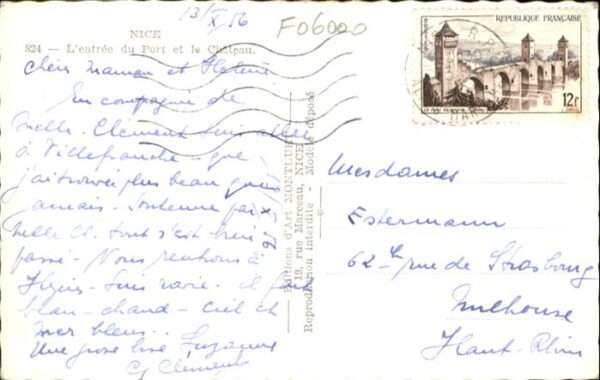 13/X 56
F06000
NICE
824 - L'entrée du Port et le Château.
REPUBLIQUE FRANÇAISE
12F
Chère Maman et
En compagnie de
Melle. Clément suis allée
à Villefranche - que
j'ai trouvé plus beau que
jamais - Soutenue par
Melle Cl. tout s'est bien
passé - Nous rentrons à
- suis ravie - il fait
beau - chaud - ciel et
mer bleus..
Une grosse bise Suzanne
Clément
Editions d'Art MONTLUET
19, rue Marceau, NICE
Reproduction interdite - Modèle déposé
Mesdames
Estermann
62 rue de Strasbourg
Mulhouse
Haut-Rhin